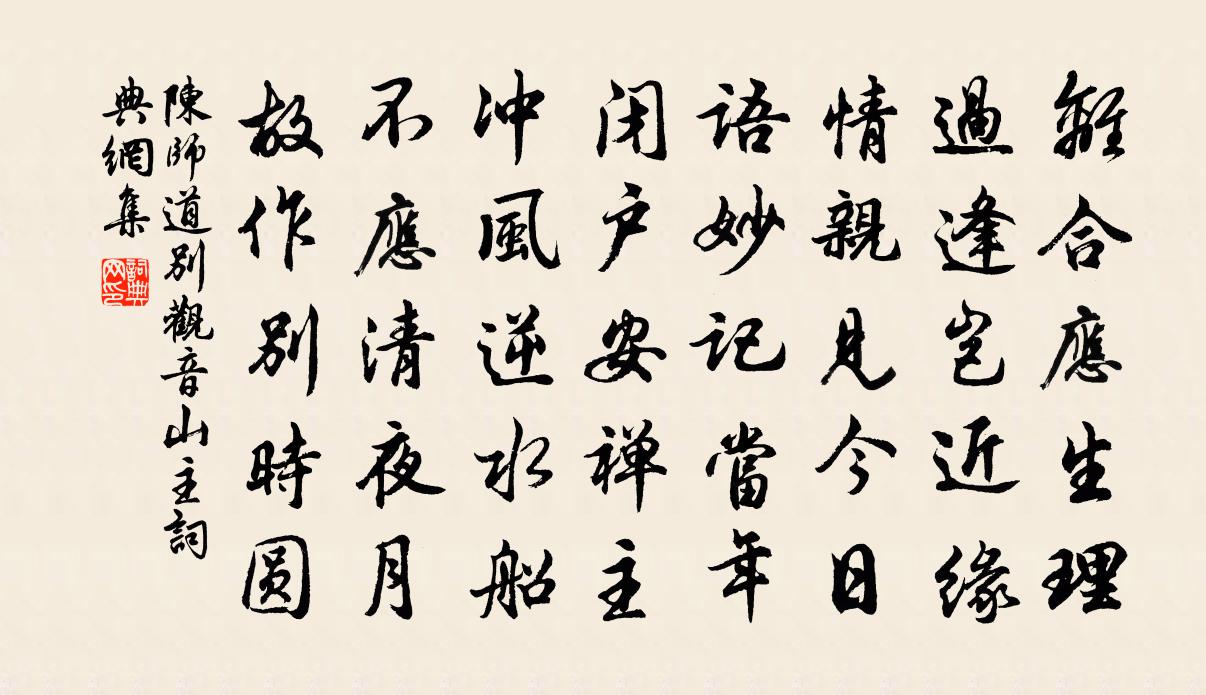 離合應生理
過逢豈近緣
情親見今日
語妙記當年
闭户安禅主
冲風逆水船
不應清夜月
故作別時圆
陳師道別觀音山主詞
典網集
詞典
网印